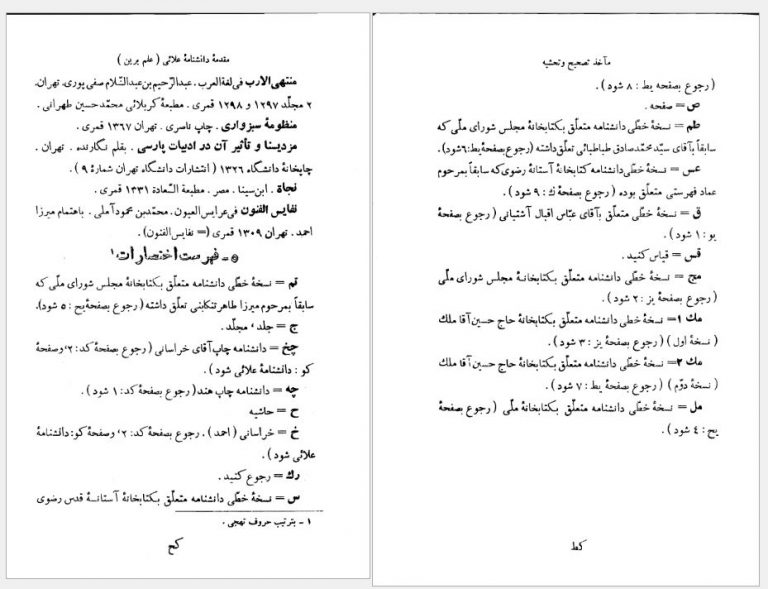 مقدمهٔ دانشنامهٔ علائی ( علم برین )
منتهی الارب فی لغة العرب . عبدالرّحیم بن عبدالسّلام صفی پوری. تهران.
۲ مجلّد ۱۲۹۷ و ۱۲۹۸ قمری . مطبعهٔ کربلائی محمّدحسین طهرانی .
منظومهٔ سبزواری . چاپ ناصری . تهران ۱۳۶۷ قمری .
مزدیسنا و تأثیر آن در ادبیات پارسی . بقلم نگارنده . تهران .
چاپخانهٔ دانشگاه ۱۳۲۶ ( انتشارات دانشگاه تهران شمارهٔ ۹ ) .
نجاة . ابن‌سینا . مصر . مطبعة السّعادة ۱۳۳۱ قمری .
نفایس الفنون فی عرایس العیون . محمّدبن محمود آملی . باهتمام میرزا
احمد . تهران ۱۳۰۹ قمری (= نفایس الفنون) .
۵ ـ فهرست اختصارات ۱
تم = نسخهٔ خطّی دانشنامه متعلّق بکتابخانهٔ مجلس شورای ملّی که
سابقاً بمرحوم میرزا طاهر تنکابنی تعلّق داشته ( رجوع بصفحهٔ یح : ۵ شود).
ج = جلد ، مجلّد .
چخ = دانشنامه چاپ آقای خراسانی ( رجوع بصفحهٔ کد: ۲، وصفحهٔ
کو : دانشنامهٔ علائی شود ) .
چه = دانشنامه چاپ هند ( رجوع بصفحهٔ کد: ۱ شود ) .
ح = حاشیه
خ = خراسانی ( احمد ) . رجوع بصفحهٔ کد: ۲، وصفحهٔ کو: دانشنامهٔ
علائی شود ) .
رك = رجوع کنید .
س = نسخهٔ خطّی دانشنامه متعلّق بکتابخانهٔ آستانـهٔ قدس رضوی
۱ ـ بترتیب حروف تهجی .
کح
مآخذ تصحیح و تحشیه
( رجوع بصفحه یط : ۸ شود ) .
ص = صفحه .
طم = نسخهٔ خطّی دانشنامه متعلّق بکتابخانهٔ مجلس شورای ملی که
سابقاً بآقای سیّد محمّدصادق طباطبائی تعلّق داشته (رجوع بصفحهٔ یط:۶ شود).
عس = نسخهٔ خطّی دانشنامه کتابخانهٔ آستانهٔ رضوی که سابقاً بمرحوم
عماد فهرستی متعلّق بوده ( رجوع بصفحهٔ ك: ۹ شود ) .
ق = نسخهٔ خطّی متعلّق بآقای عبّاس اقبال آشتیانی ( رجوع بصفحهٔ
یو : ۱ شود ) .
قس = قیاس کنید .
مج = نسخهٔ خطّی دانشنامه متعلّق بکتابخانهٔ مجلس شورای ملّی
( رجوع بصفحهٔ یز : ۲ شود ) .
مك ۱= نسخهٔ خطی دانشنامه متعلّق بکتابخانهٔ حاج حسین آقا ملك
( نسخهٔ اول ) ( رجوع بصفحهٔ یز : ۳ شود ) .
مك ۲= نسخهٔ خطّی دانشنامه متعلّق بکتابخانهٔ حاج حسین آقا ملك
( نسخهٔ دوّم ) ( رجوع بصفحهٔ یط : ۷ شود ) .
مل = نسخهٔ خطّی دانشنامه متعلّق بکتابخانهٔ ملّی ( رجوع بصفحهٔ
یح : ٤ شود ) .
کط